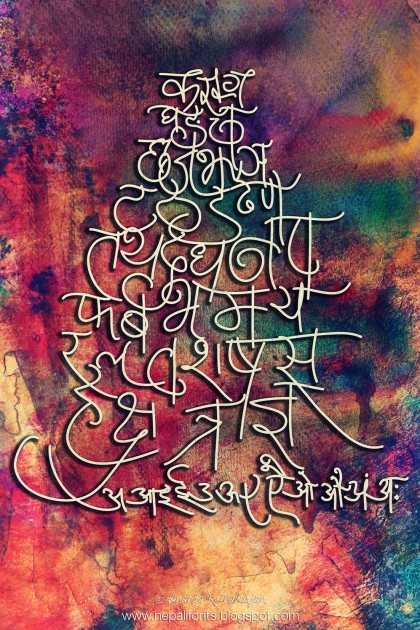 क ख ग
घ ङ च
छ ज झ ञ
ट ठ ड ढ ण
त थ द ध न प
फ ब भ म य
र ल व श ष स
ह क्ष त्र ज्ञ
अ आ इ ई उ ऊ ए ऐ ओ औ अं अः
© Ananda K. Maharjan
www.nepalifonts.blogspot.com